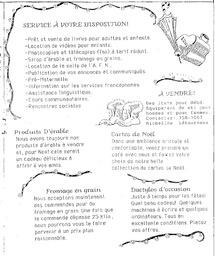 SERVICE À VOTRE DISPOSITION!
-Prêt et vente de livres pour adultes et enfants
-Location de vidéos pour enfants.
-Photocopies et télécopies (fax) à tarif réduit.
-Sirop d'érable et fromage en grains.
-Location de salle de l'A.F.N.
-Publication de vos annonces et communiqués
-Pré-Maternelle
-Information sur les services francophones
-Assistance linguistique.
-Cours communautaires.
-Rencontres sociales
À VENDRE!
Des livres pour
Produits D'érable
Nous avons toujours nos
produits d'érable à vendre
et, pour Noël cela serait
un cadeau délicieux à
offrir à vos amis.
Cartes de Noël
Dans une ambiance amicale et
confortable, venez prendre un
café avec nous et voyez votre
choix de notre belle
collection de cartes de Noël
Fromage en grain
Nous acceptons maintenant
les commandes pour du
fromage en grain. Une fois que
la commande dépasse 25 kilo,
nous pourrons vous le faire
parvenir à un prix plus
raisonnable.
Dactylos d'occasion
Juste à temps pour les fêtes!
Quel beau cadeau! Quelques
machines à écrire et quelques
ordinateurs. Tous en
excellentes conditions.
Placez, appelez!